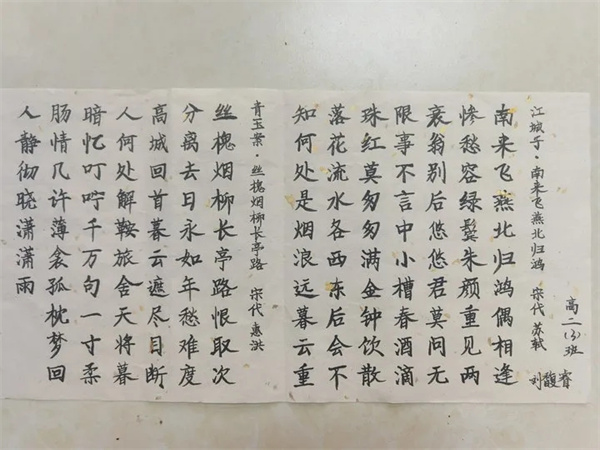 高二(3)班
刘馥睿
江城子·南来飞燕北归鸿 宋代 苏轼
南来飞燕北归鸿偶相逢
惨愁容绿鬓朱颜重见两
衰翁别后悠悠君莫问无
限事不言中小槽春酒滴
珠红莫匆匆满金钟饮散
落花流水各西东后会不
知何处是烟浪远暮云重
青玉案·丝槐烟柳长亭路 宋代 惠洪
丝槐烟柳长亭路恨取次
分离去日永如年愁难度
高城回首暮云遮尽目断
人何处解鞍旅舍天将暮
暗忆叮咛千万句一寸柔
肠情几许薄衾孤枕梦回
人静彻晓潇潇雨